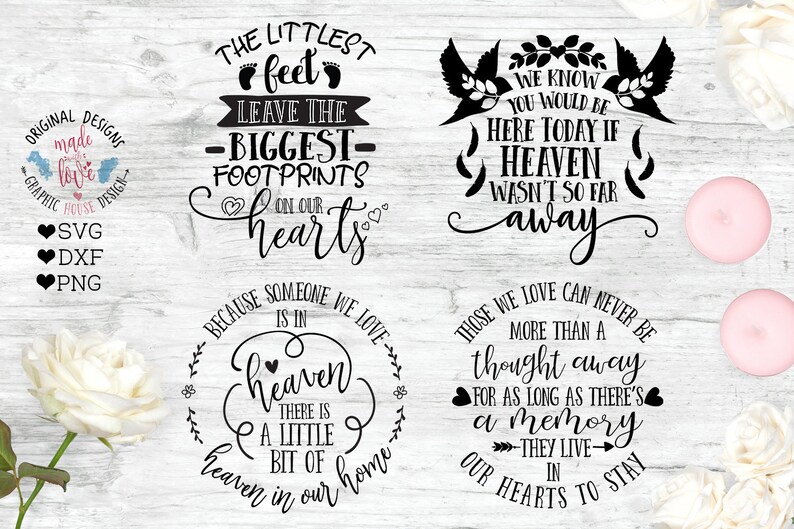 ORIGINAL DESIGNS
made
with
love
GRAPHIC HOUSE DESIGN
SVG
DXF
PNG
THE LITTLEST
feet
LEAVE THE
BIGGEST
FOOTPRINTS
ON OUR
hearts
WE KNOW
YOU WOULD BE
HERE TODAY IF
HEAVEN
WASN'T SO FAR
away
BECAUSE SOMEONE WE LOVE
IS IN
heaven
THERE IS
A LITTLE
BIT OF
heaven in our home
THOSE WE LOVE CAN NEVER BE
MORE THAN A
thought away
FOR AS LONG AS THERE'S
a memory
THEY LIVE
IN
OUR HEARTS TO STAY